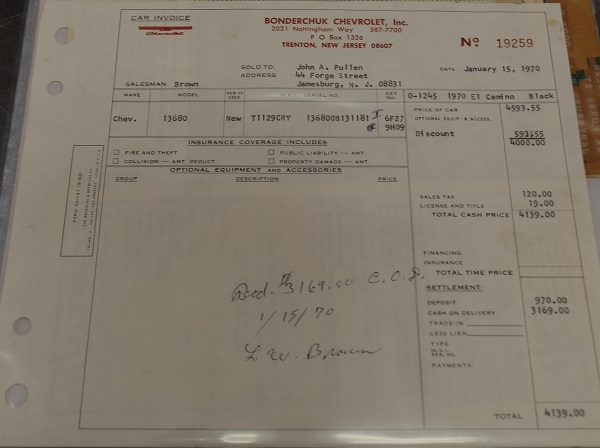 CAR INVOICE
Chevrolet
BONDERCHUK CHEVROLET, Inc.
2021 Nottingham Way 587-7700
P O Box 1326
TRENTON, NEW JERSEY 08607
No 19259
SOLD TO John A. Pullen
ADDRESS 44 Forge Street
Jamesburg, N. J. 08831
DATE January 15, 1970
SALESMAN Brown
MAKE MODEL NEW OR USED SERIAL NO. KEY NO.
O-1245 1970 El Camino Black
Chev. 13680 New T1129CRY 136800B131181 I 6F27
E 9H09
PRICE OF CAR 4593.55
OPTIONAL EQUIP. & ACCESS.
Discount 593.55
4000.00
INSURANCE COVERAGE INCLUDES
FIRE AND THEFT PUBLIC LIABILITY — AMT.
COLLISION — AMT. DEDUCT. PROPERTY DAMAGE — AMT.
OPTIONAL EQUIPMENT AND ACCESSORIES
GROUP DESCRIPTION PRICE
SALES TAX 120.00
LICENSE AND TITLE 19.00
TOTAL CASH PRICE 4139.00
FINANCING
INSURANCE
TOTAL TIME PRICE
SETTLEMENT:
DEPOSIT 970.00
CASH ON DELIVERY 3169.00
TRADE-IN
LESS LIEN
TYPE
SER. NO.
PAYMENTS:
Recd. $3169.00 C.O.D.
1/15/70
L. W. Brown
TOTAL 4139.00